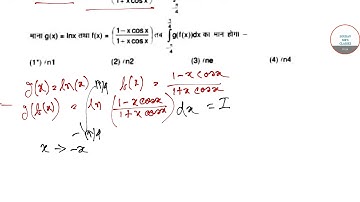 माना g(x) = lnx तथा f(x) = (1−x cosx / 1+x cosx) तब ∫_{-π/4}^{π/4} g(f(x))dx का मान होगा −
(1*) ℓn1 (2) ℓn2 (3) ℓne (4) ℓn4
g(x) = ln(x) f(x) = 1−x cosx / 1+x cosx
g(f(x)) = ∫_{-π/4}^{π/4} ln (1−x cosx / 1+x cosx) dx = I
x → −x